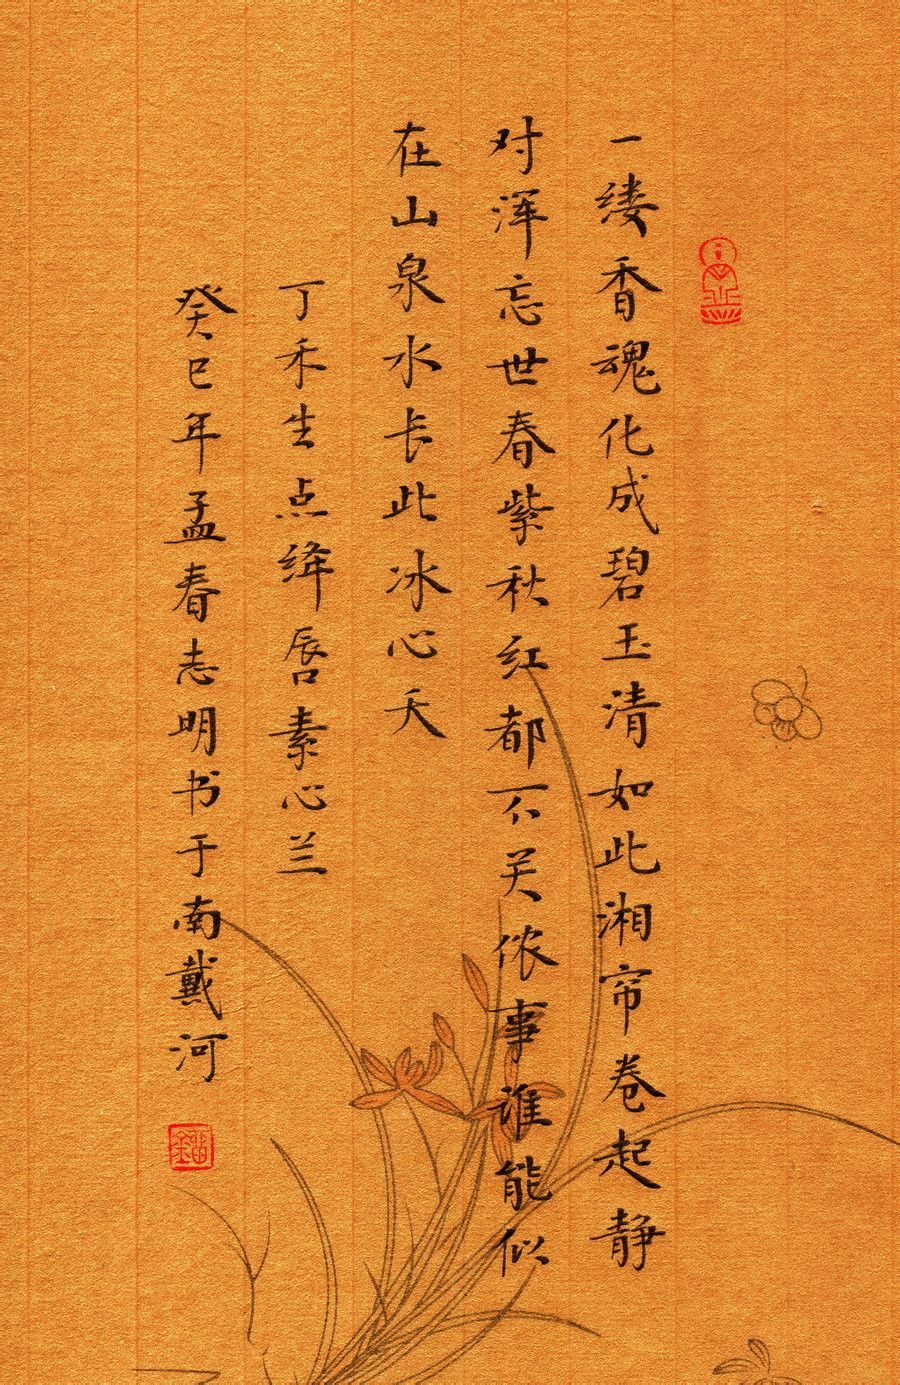 一缕香魂化成碧玉清如此湘帘卷起静
对浑忘世春紫秋红都不关侬事谁能似
在山泉水长此冰心矢
丁禾生点绛唇素心兰
癸巳年孟春志明书于南戴河